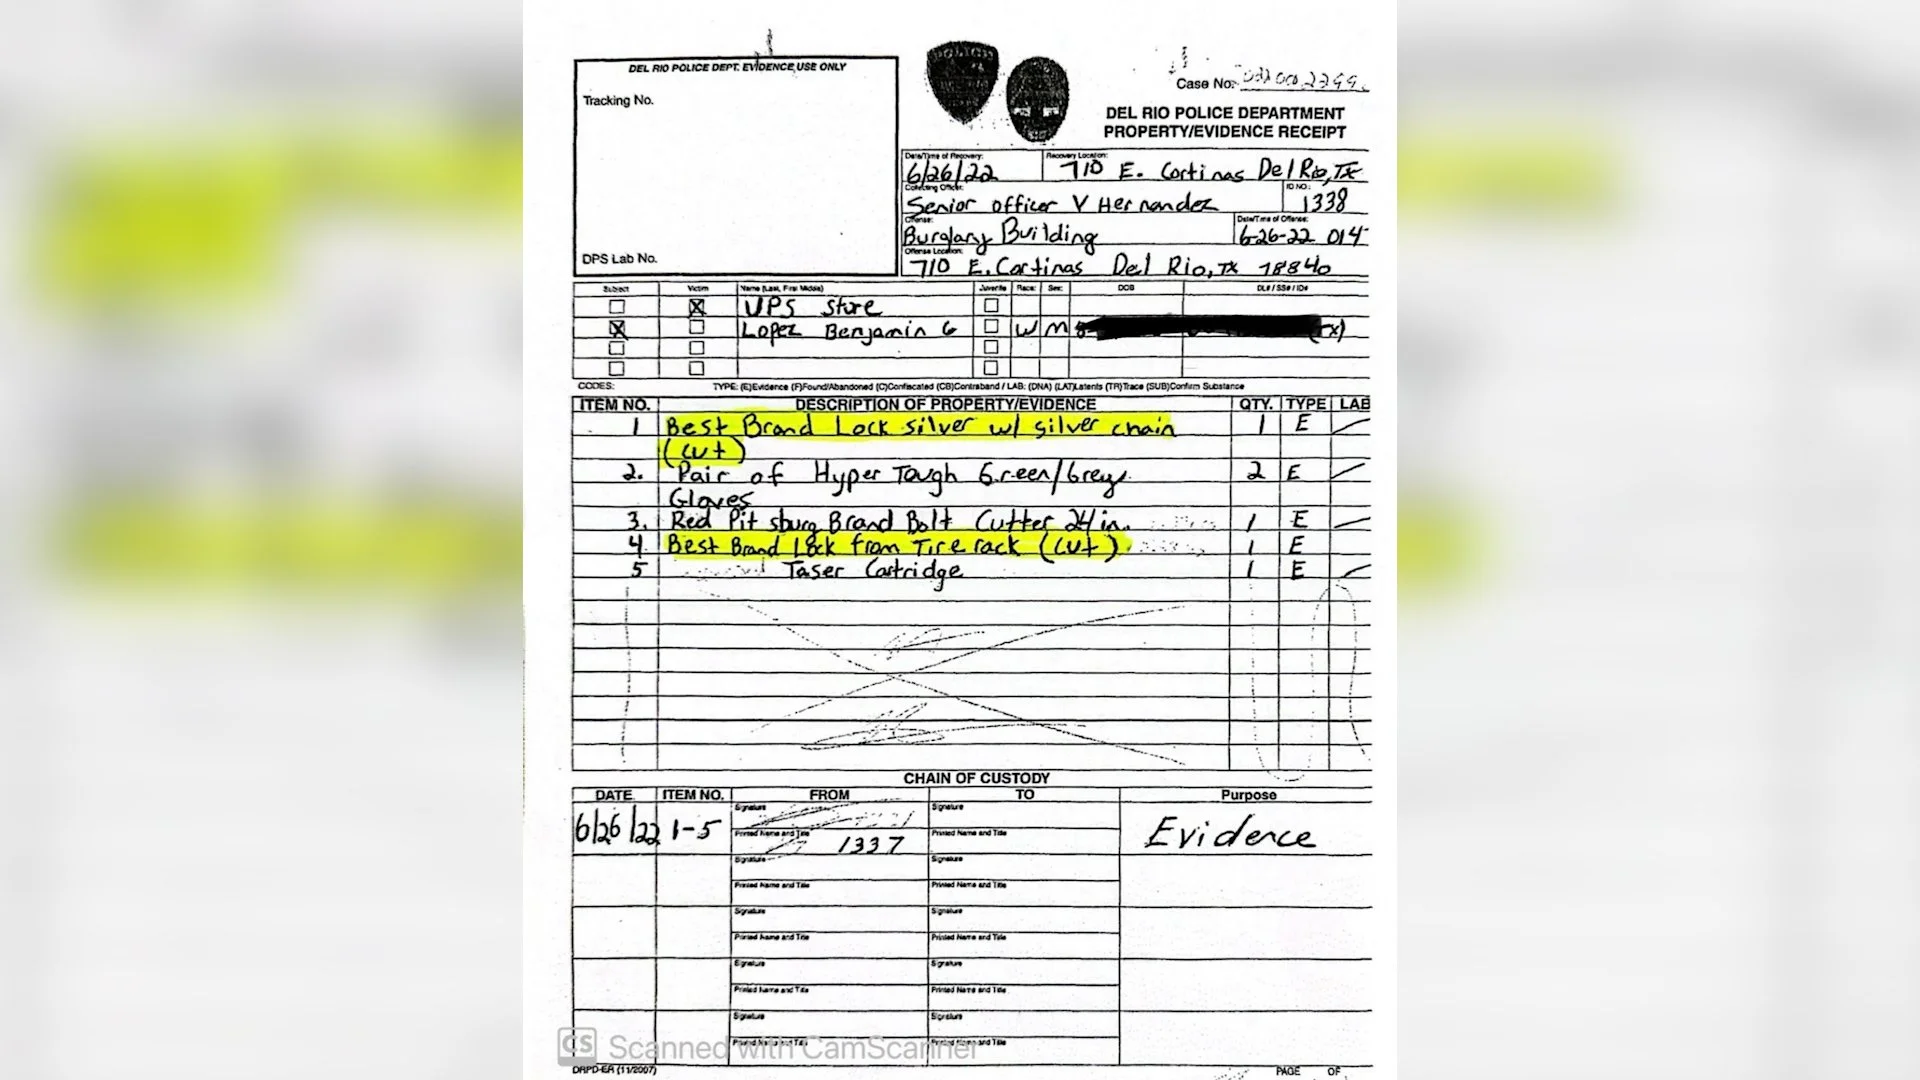 DEL RIO POLICE DEPT. EVIDENCE USE ONLY
Tracking No.
DPS Lab No.
Case No:
DEL RIO POLICE DEPARTMENT
PROPERTY/EVIDENCE RECEIPT
Date/Time of Recovery: Recovery Location:
6/26/22 710 E. Cortinas Del Rio, TX
Collecting Officer: ID NO.:
Senior officer V Hernandez 1338
Offense: Date/Time of Offense:
Burglary Building 6-26-22 014
Offense Location:
710 E. Cortinas Del Rio, TX 78840
Subject Victim Name (Last, First Middle) Juvenile Race: Sex: DOB DL# / SS# / ID#
UPS Store
Lopez Benjamin G W M
CODES: TYPE: (E)Evidence (F)Found/Abandoned (C)Confiscated (CB)Contraband / LAB: (DNA) (LAT)Latents (TR)Trace (SUB)Confirm Substance
ITEM NO. DESCRIPTION OF PROPERTY/EVIDENCE QTY. TYPE LAB
1 Best Brand Lock silver w/ silver chain 1 E
(cut)
2. Pair of Hyper Tough Green/Grey 2 E
Gloves
3. Red Pitsburg Brand Bolt Cutter 24 in. 1 E
4 Best Brand Lock from Tire rack (cut) 1 E
5 Taser Cartridge 1 E
CHAIN OF CUSTODY
DATE ITEM NO. FROM TO Purpose
Signature Signature
6/26/22 1-5 Evidence
Printed Name and Title Printed Name and Title
1337
Signature Signature
Printed Name and Title Printed Name and Title
Signature Signature
Printed Name and Title Printed Name and Title
Signature Signature
Printed Name and Title Printed Name and Title
Signature Signature
Printed Name and Title Printed Name and Title
CS Scanned with CamScanner
DRPD-ER (11/2007) PAGE OF